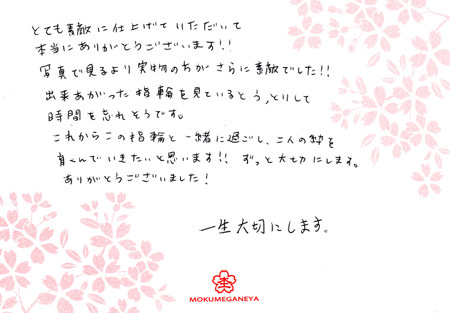 とても素敵に仕上げていただいて
本当にありがとうございます!!
写真で見るより実物のおがさらに素敵でした!!
出来あがった指輪を見ているとうっとりして
時間を忘れそうです。
これからこの指輪と一緒に過ごし、二人の絆を
育くんでいきたいと思います!! ずっと大切にします。
ありがとうございました!
一生大切にします。
MOKUMEGANEYA